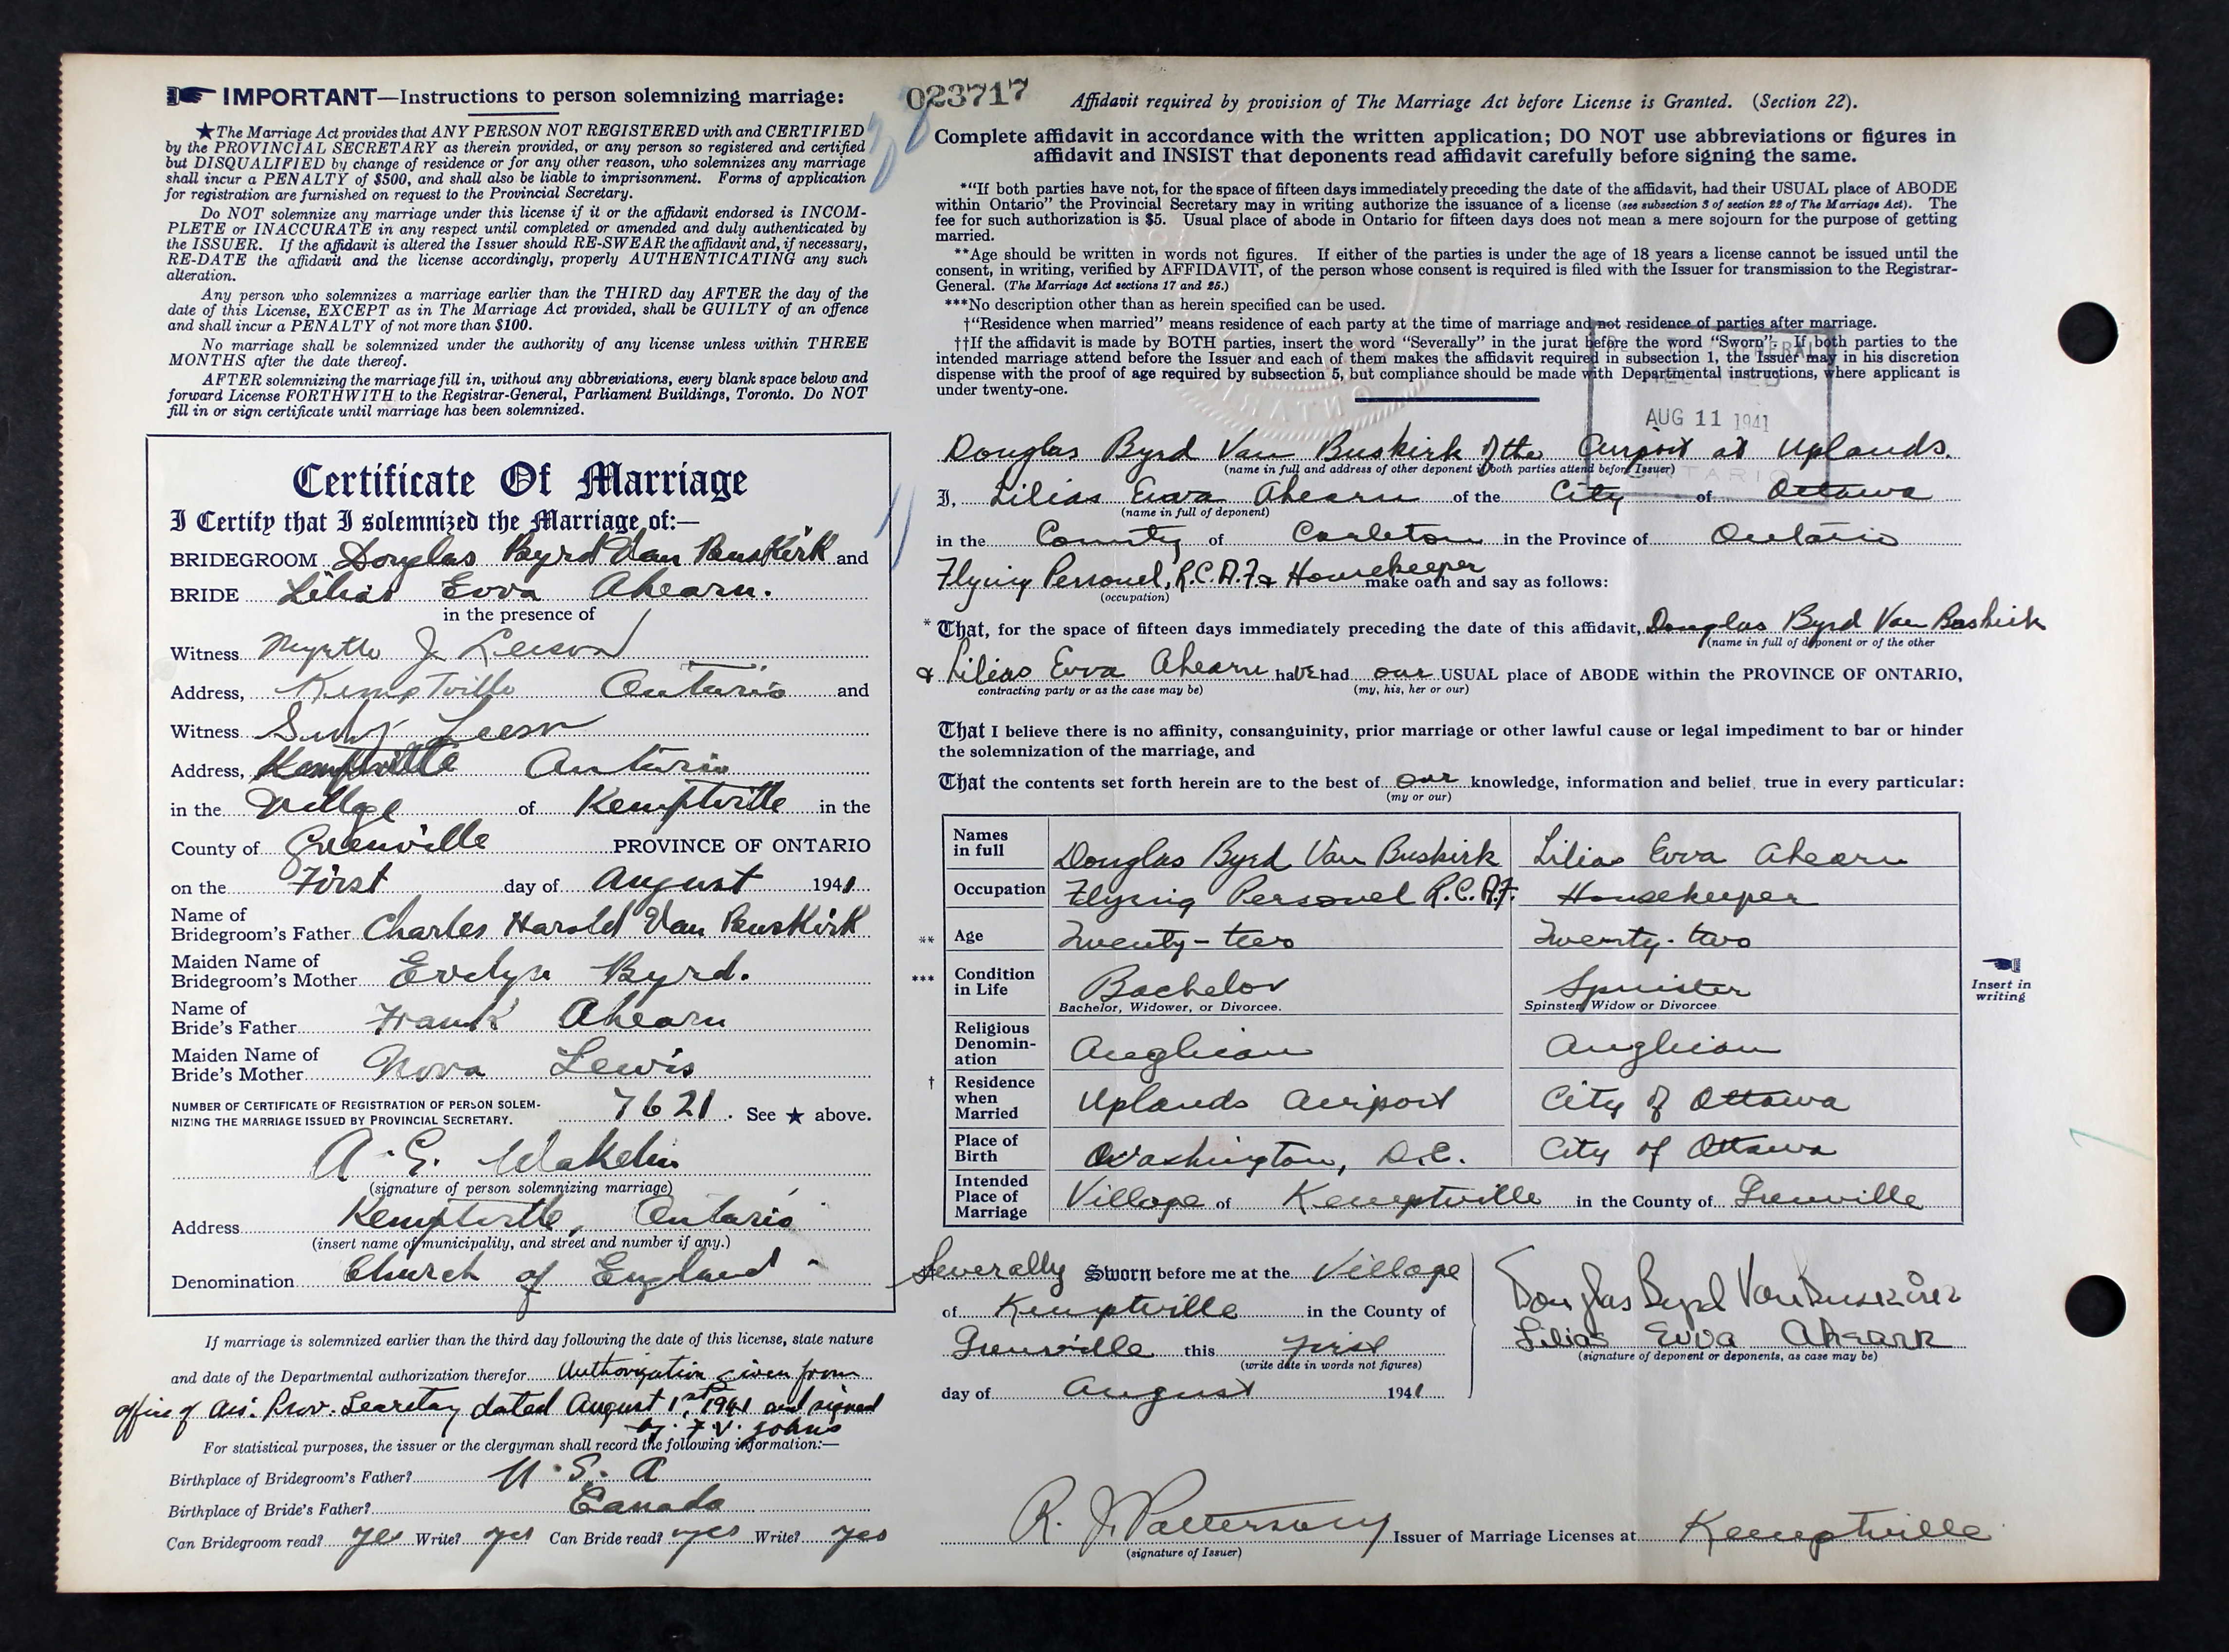 IMPORTANT—Instructions to person solemnizing marriage:
★The Marriage Act provides that ANY PERSON NOT REGISTERED with and CERTIFIED
by the PROVINCIAL SECRETARY as therein provided, or any person so registered and certified
but DISQUALIFIED by change of residence or for any other reason, who solemnizes any marriage
shall incur a PENALTY of $500, and shall also be liable to imprisonment. Forms of application
for registration are furnished on request to the Provincial Secretary.
Do NOT solemnize any marriage under this license if it or the affidavit endorsed is INCOM-
PLETE or INACCURATE in any respect until completed or amended and duly authenticated by
the ISSUER. If the affidavit is altered the Issuer should RE-SWEAR the affidavit and, if necessary,
RE-DATE the affidavit and the license accordingly, properly AUTHENTICATING any such
alteration.
Any person who solemnizes a marriage earlier than the THIRD day AFTER the day of the
date of this License, EXCEPT as in The Marriage Act provided, shall be GUILTY of an offence
and shall incur a PENALTY of not more than $100.
No marriage shall be solemnized under the authority of any license unless within THREE
MONTHS after the date thereof.
AFTER solemnizing the marriage fill in, without any abbreviations, every blank space below and
forward License FORTHWITH to the Registrar-General, Parliament Buildings, Toronto. Do NOT
fill in or sign certificate until marriage has been solemnized.
Certificate Of Marriage
I Certify that I solemnized the Marriage of:—
BRIDEGROOM Douglas Byrd Van Buskirk and
BRIDE Lilias Evva Ahearn.
in the presence of
Witness Myrtle J. Leeson
Address, Kemptville Ontario and
Witness Leeson
Address, Kemptville Ontario
in the Village of Kemptville in the
County of Grenville PROVINCE OF ONTARIO
on the First day of August 1941
Name of
Bridegroom's Father Charles Harold Van Buskirk
Maiden Name of
Bridegroom's Mother Evelyn Byrd.
Name of
Bride's Father Frank Ahearn
Maiden Name of
Bride's Mother Nora Lewis
NUMBER OF CERTIFICATE OF REGISTRATION OF PERSON SOLEM-
NIZING THE MARRIAGE ISSUED BY PROVINCIAL SECRETARY. 7621. See ★ above.
A. E. Wakelin
(signature of person solemnizing marriage)
Address Kemptville, Ontario
(insert name of municipality, and street and number if any.)
Denomination Church of England
If marriage is solemnized earlier than the third day following the date of this license, state nature
and date of the Departmental authorization therefor Authorization given from
office of Prov. Secretary dated August 1st, 1941 and signed
by F. V. Johns
For statistical purposes, the issuer or the clergyman shall record the following information:—
Birthplace of Bridegroom's Father? U. S. A
Birthplace of Bride's Father? Canada
Can Bridegroom read? yes Write? yes Can Bride read? yes Write? yes
023717
Affidavit required by provision of The Marriage Act before License is Granted. (Section 22).
Complete affidavit in accordance with the written application; DO NOT use abbreviations or figures in
affidavit and INSIST that deponents read affidavit carefully before signing the same.
*"If both parties have not, for the space of fifteen days immediately preceding the date of the affidavit, had their USUAL place of ABODE
within Ontario" the Provincial Secretary may in writing authorize the issuance of a license (see subsection 3 of section 22 of The Marriage Act). The
fee for such authorization is $5. Usual place of abode in Ontario for fifteen days does not mean a mere sojourn for the purpose of getting
married.
**Age should be written in words not figures. If either of the parties is under the age of 18 years a license cannot be issued until the
consent, in writing, verified by AFFIDAVIT, of the person whose consent is required is filed with the Issuer for transmission to the Registrar-
General. (The Marriage Act sections 17 and 25.)
***No description other than as herein specified can be used.
†"Residence when married" means residence of each party at the time of marriage and not residence of parties after marriage.
††If the affidavit is made by BOTH parties, insert the word "Severally" in the jurat before the word "Sworn". If both parties to the
intended marriage attend before the Issuer and each of them makes the affidavit required in subsection 1, the Issuer may in his discretion
dispense with the proof of age required by subsection 5, but compliance should be made with Departmental instructions, where applicant is
under twenty-one.
AUG 11 1941
ONTARIO
Douglas Byrd Van Buskirk of the Airport at Uplands.
(name in full and address of other deponent if both parties attend before Issuer)
I, Lilias Evva Ahearn of the City of Ottawa
(name in full of deponent)
in the County of Carleton in the Province of Ontario
Flying Personel, R.C.A.F. & Housekeeper make oath and say as follows:
(occupation)
* That, for the space of fifteen days immediately preceding the date of this affidavit, Douglas Byrd Van Buskirk
(name in full of deponent or of the other
& Lilias Evva Ahearn have had our USUAL place of ABODE within the PROVINCE OF ONTARIO,
contracting party or as the case may be) (my, his, her or our)
That I believe there is no affinity, consanguinity, prior marriage or other lawful cause or legal impediment to bar or hinder
the solemnization of the marriage, and
That the contents set forth herein are to the best of our knowledge, information and belief, true in every particular:
(my or our)
Names
in full Douglas Byrd Van Buskirk Lilias Evva Ahearn
Occupation Flying Personel R.C.A.F. Housekeeper
** Age Twenty-two Twenty-two
*** Condition
in Life Bachelor Spinster
Bachelor, Widower, or Divorcee. Spinster, Widow or Divorcee
Insert in
writing
Religious
Denomin-
ation Anglican Anglican
† Residence
when
Married Uplands Airport City of Ottawa
Place of
Birth Washington, D.C. City of Ottawa
Intended
Place of
Marriage Village of Kemptville in the County of Grenville
Severally Sworn before me at the Village
of Kemptville in the County of
Grenville this First
(write date in words not figures)
day of August 1941
Douglas Byrd Van Buskirk
Lilias Evva Ahearn
(signature of deponent or deponents, as case may be)
R. J. Patterson Issuer of Marriage Licenses at Kemptville
(signature of Issuer)